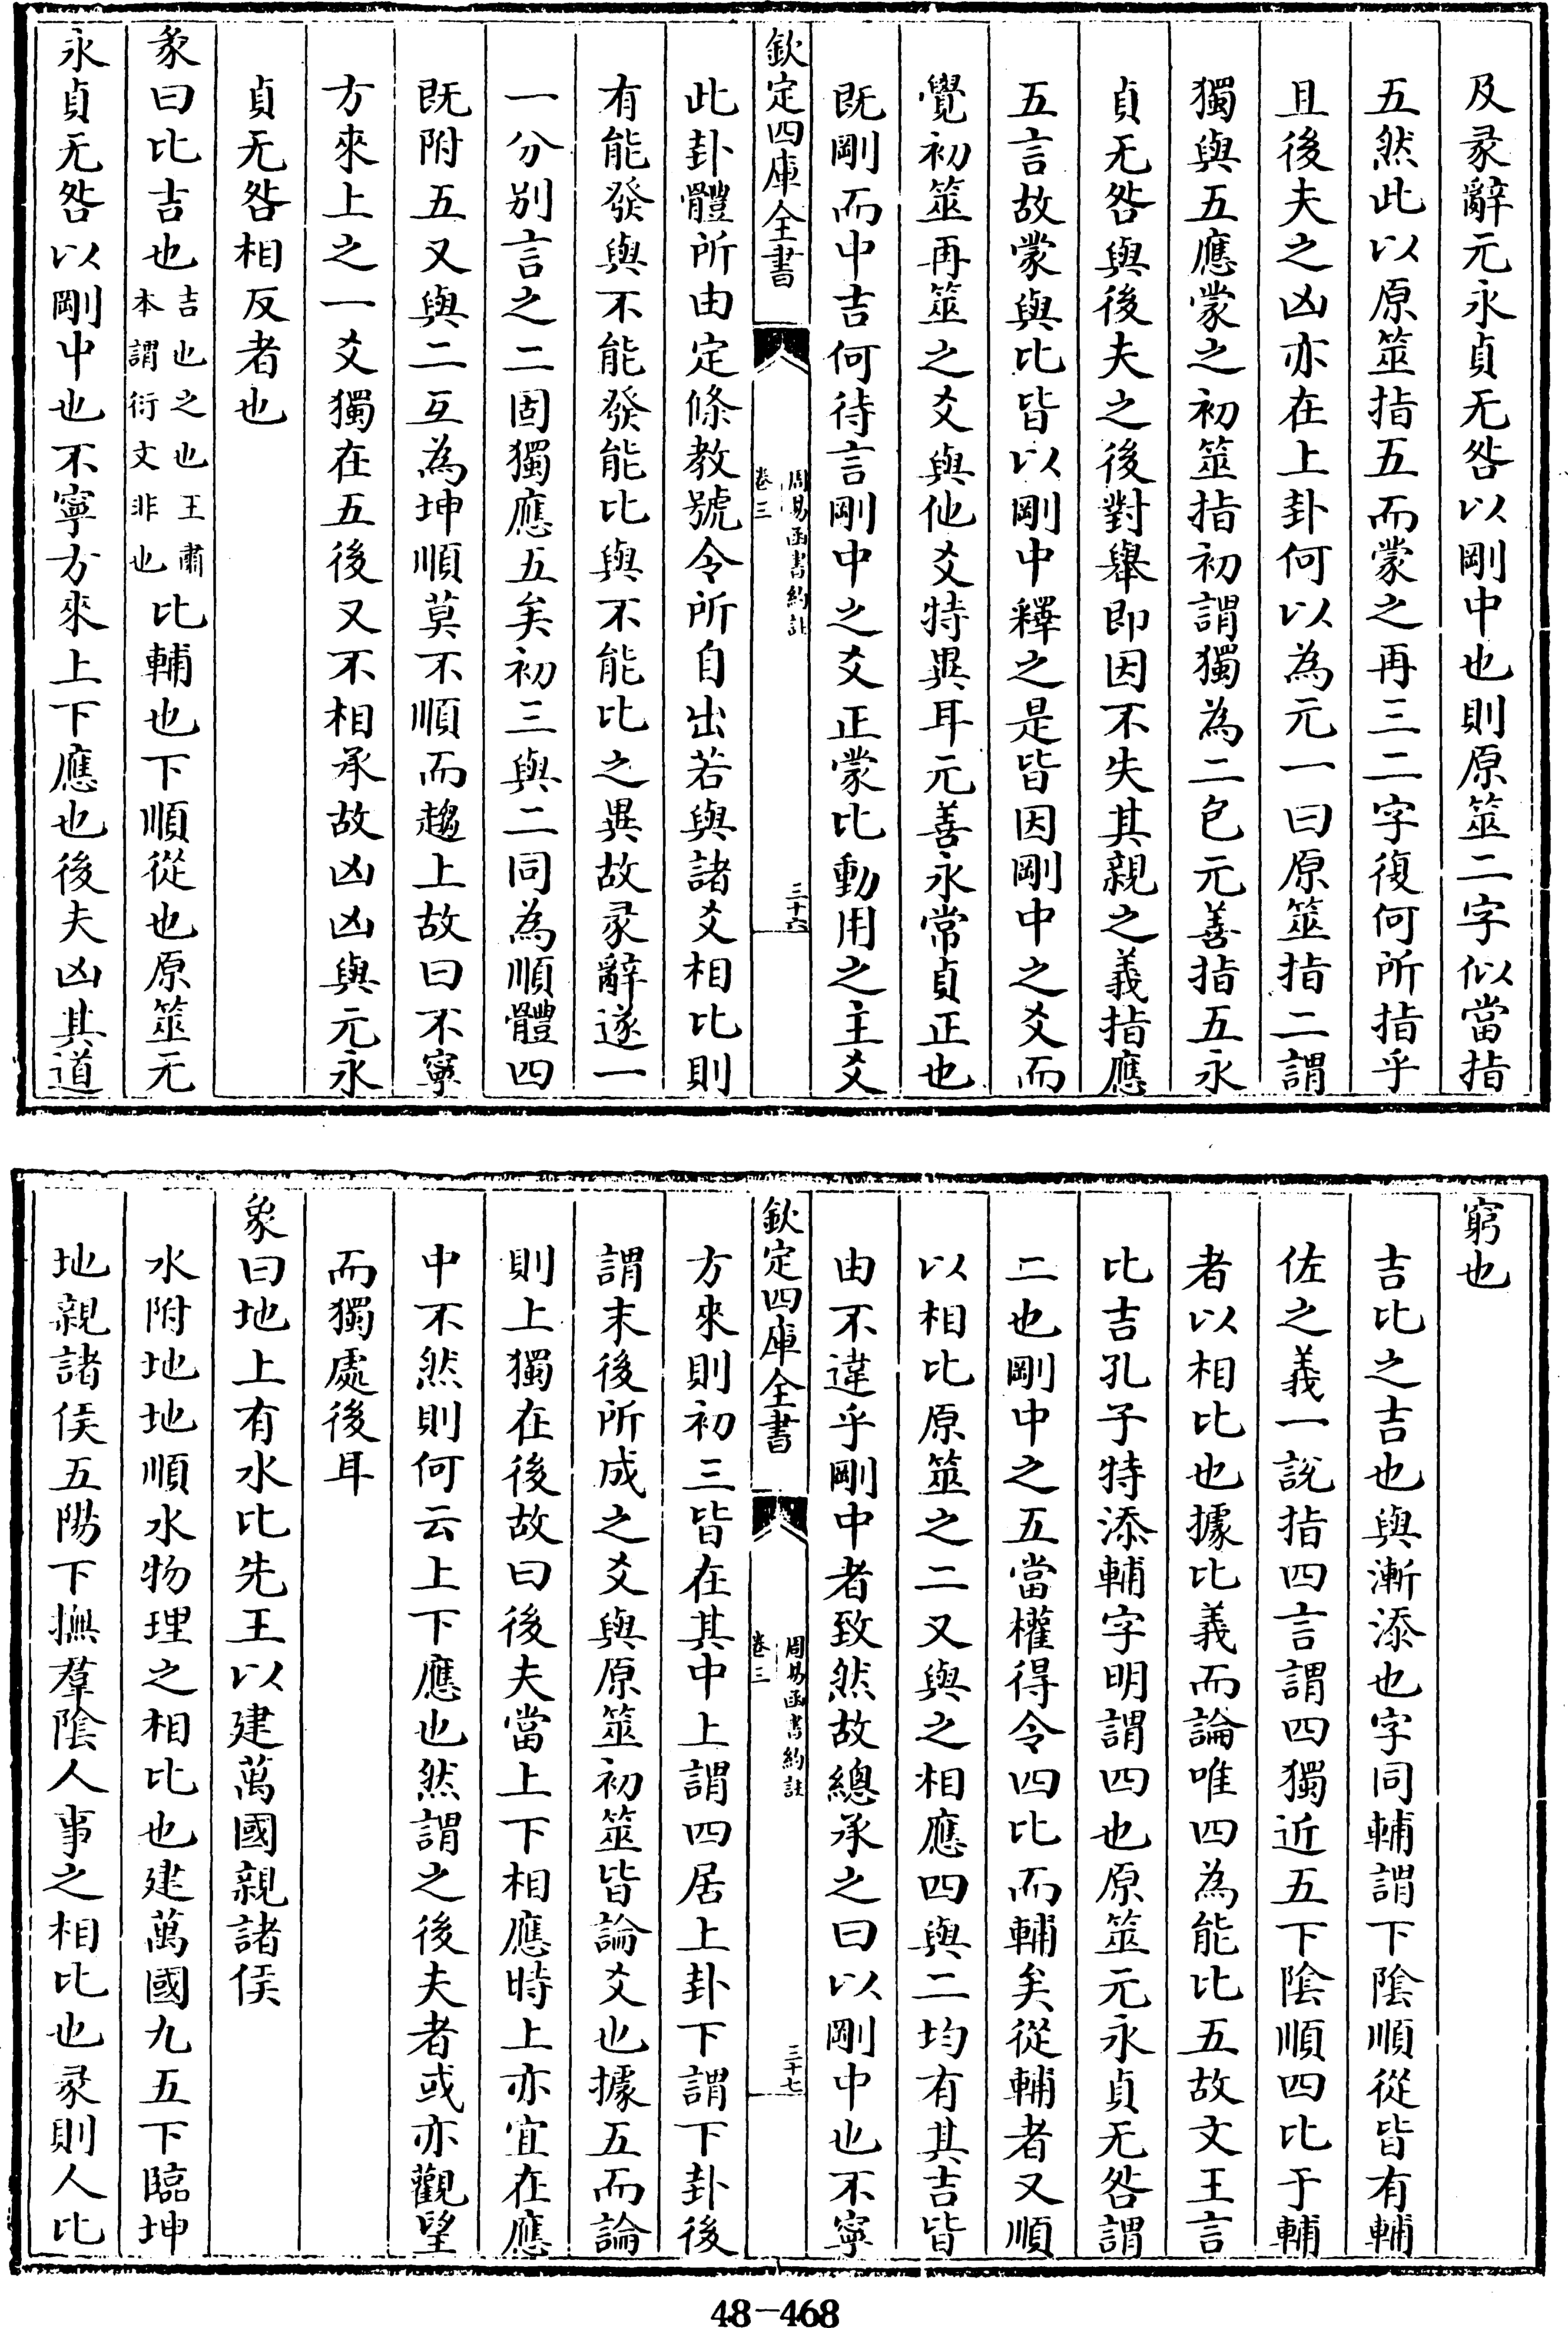 及彖辭元永貞无咎以剛中也則原筮二字似當指
五然此以原筮指五而蒙之再三二字復何所指乎
且後夫之凶亦在上卦何以為元一曰原筮指二謂
獨與五應蒙之初筮指初謂獨為二包元善指五永
貞无咎與後夫之後對舉即因不失其親之義指應
五言故蒙與比皆以剛中釋之是皆因剛中之爻而
覺初筮再筮之爻與他爻特異耳元善永常貞正也
既剛而中吉何待言剛中之爻正蒙比動用之主爻
欽定四庫全書
周易函書約註
卷三
三十六
此卦體所由定條教號令所自出若與諸爻相比則
有能發與不能發能比與不能比之異故彖辭遂一
一分别言之二固獨應五矣初三與二同為順體四
既附五又與二互為坤順莫不順而趨上故曰不寧
方來上之一爻獨在五後又不相承故凶凶與元永
貞无咎相反者也
彖曰比吉也吉也之也王肅本謂衍文非也比輔也下順從也原筮元
永貞无咎以剛中也不寧方來上下應也後夫凶其道
窮也
吉比之吉也與漸添也字同輔謂下陰順從皆有輔
佐之義一說指四言謂四獨近五下陰順四比于輔
者以相比也據比義而論唯四為能比五故文王言
比吉孔子特添輔字明謂四也原筮元永貞无咎謂
二也剛中之五當權得令四比而輔矣從輔者又順
以相比原筮之二又與之相應四與二均有其吉皆
由不違乎剛中者致然故總承之曰以剛中也不寧
欽定四庫全書
周易函書約註
卷三
三十七
方來則初三皆在其中上謂四居上卦下謂下卦後
謂末後所成之爻與原筮初筮皆論爻也據五而論
則上獨在後故曰後夫當上下相應時上亦宜在應
中不然則何云上下應也然謂之後夫者或亦觀望
而獨處後耳
象曰地上有水比先王以建萬國親諸侯
水附地地順水物理之相比也建萬國九五下臨坤
地親諸侯五陽下撫羣陰人事之相比也彖則人比
48-468